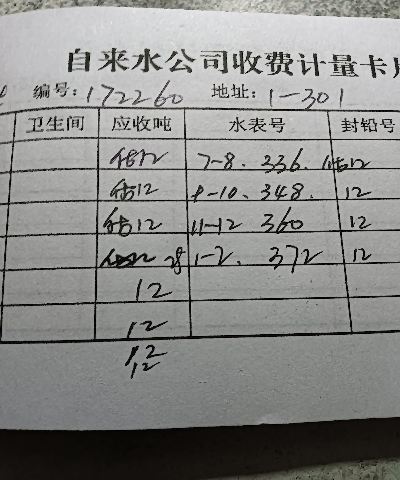 自来水公司收费计量卡
编号:172260 地址:1-301
卫生间 应收吨 水表号 封铅号
估12 7-8. 336. 估12
估12 9-10. 348. 12
估12 11-12 360 12
1-2. 372 12
12
12
12
12